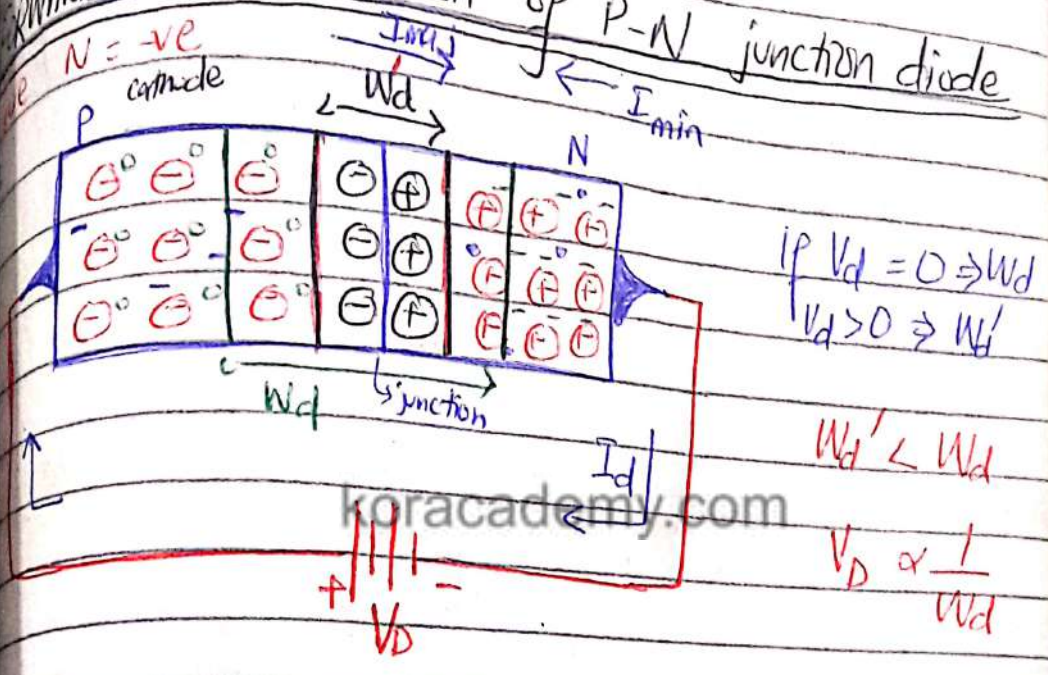 of P-N junction diode
N = -ve
cathode
Imaj
Imin
Wd'
P
N
if Vd = 0 ⇒ Wd
Vd > 0 ⇒ Wd'
Wd
junction
Wd' < Wd
Id
koracademy.com
VD ∝ 1/Wd
+ -
VD